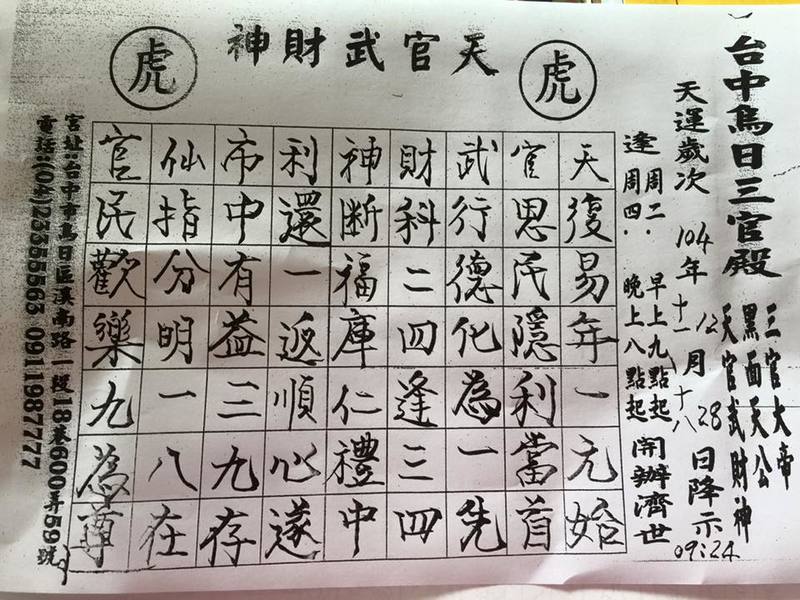 台中烏日三官殿
三官大帝
黑面天公
天官武財神
天運歲次 104年 十一 12月 十八 28日降示
09:24
逢周二．早上九點起
周四．晚上八點起
開辦濟世
虎
天官武財神
虎
天復易年一元始
官思民隱利當首
武行德化為一先
財科二四逢三四
神断福庫仁禮中
利還一返順心遂
市中有益三九存
仙指分明一八在
官民歡樂九為尊
宮址:台中市烏日區溪南路一段18巷600弄59號
電話:(04)23355563 0911987777